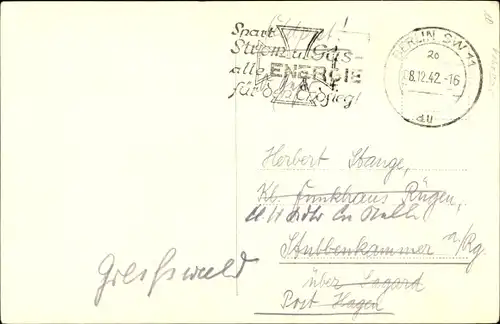 Spart
Strom u. Gas-
alle ENERGIE
für den Endsieg!
BERLIN SW 11
20
8.12.42.-16
au
Herbert Stange,
Kl. Funkhaus Rügen,
Stubbenkammer a/Rg.
Greifswald
über Sagard
Post Hagen